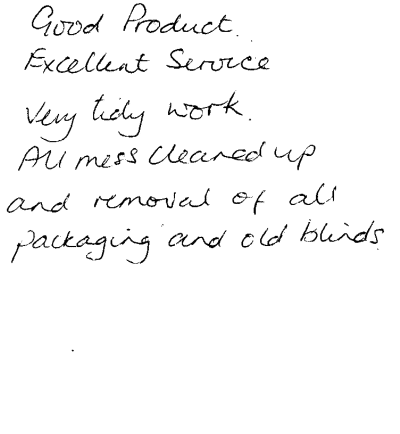 Good Product.
Excellent Service
Very tidy work.
All mess cleaned up
and removal of all
packaging and old blinds